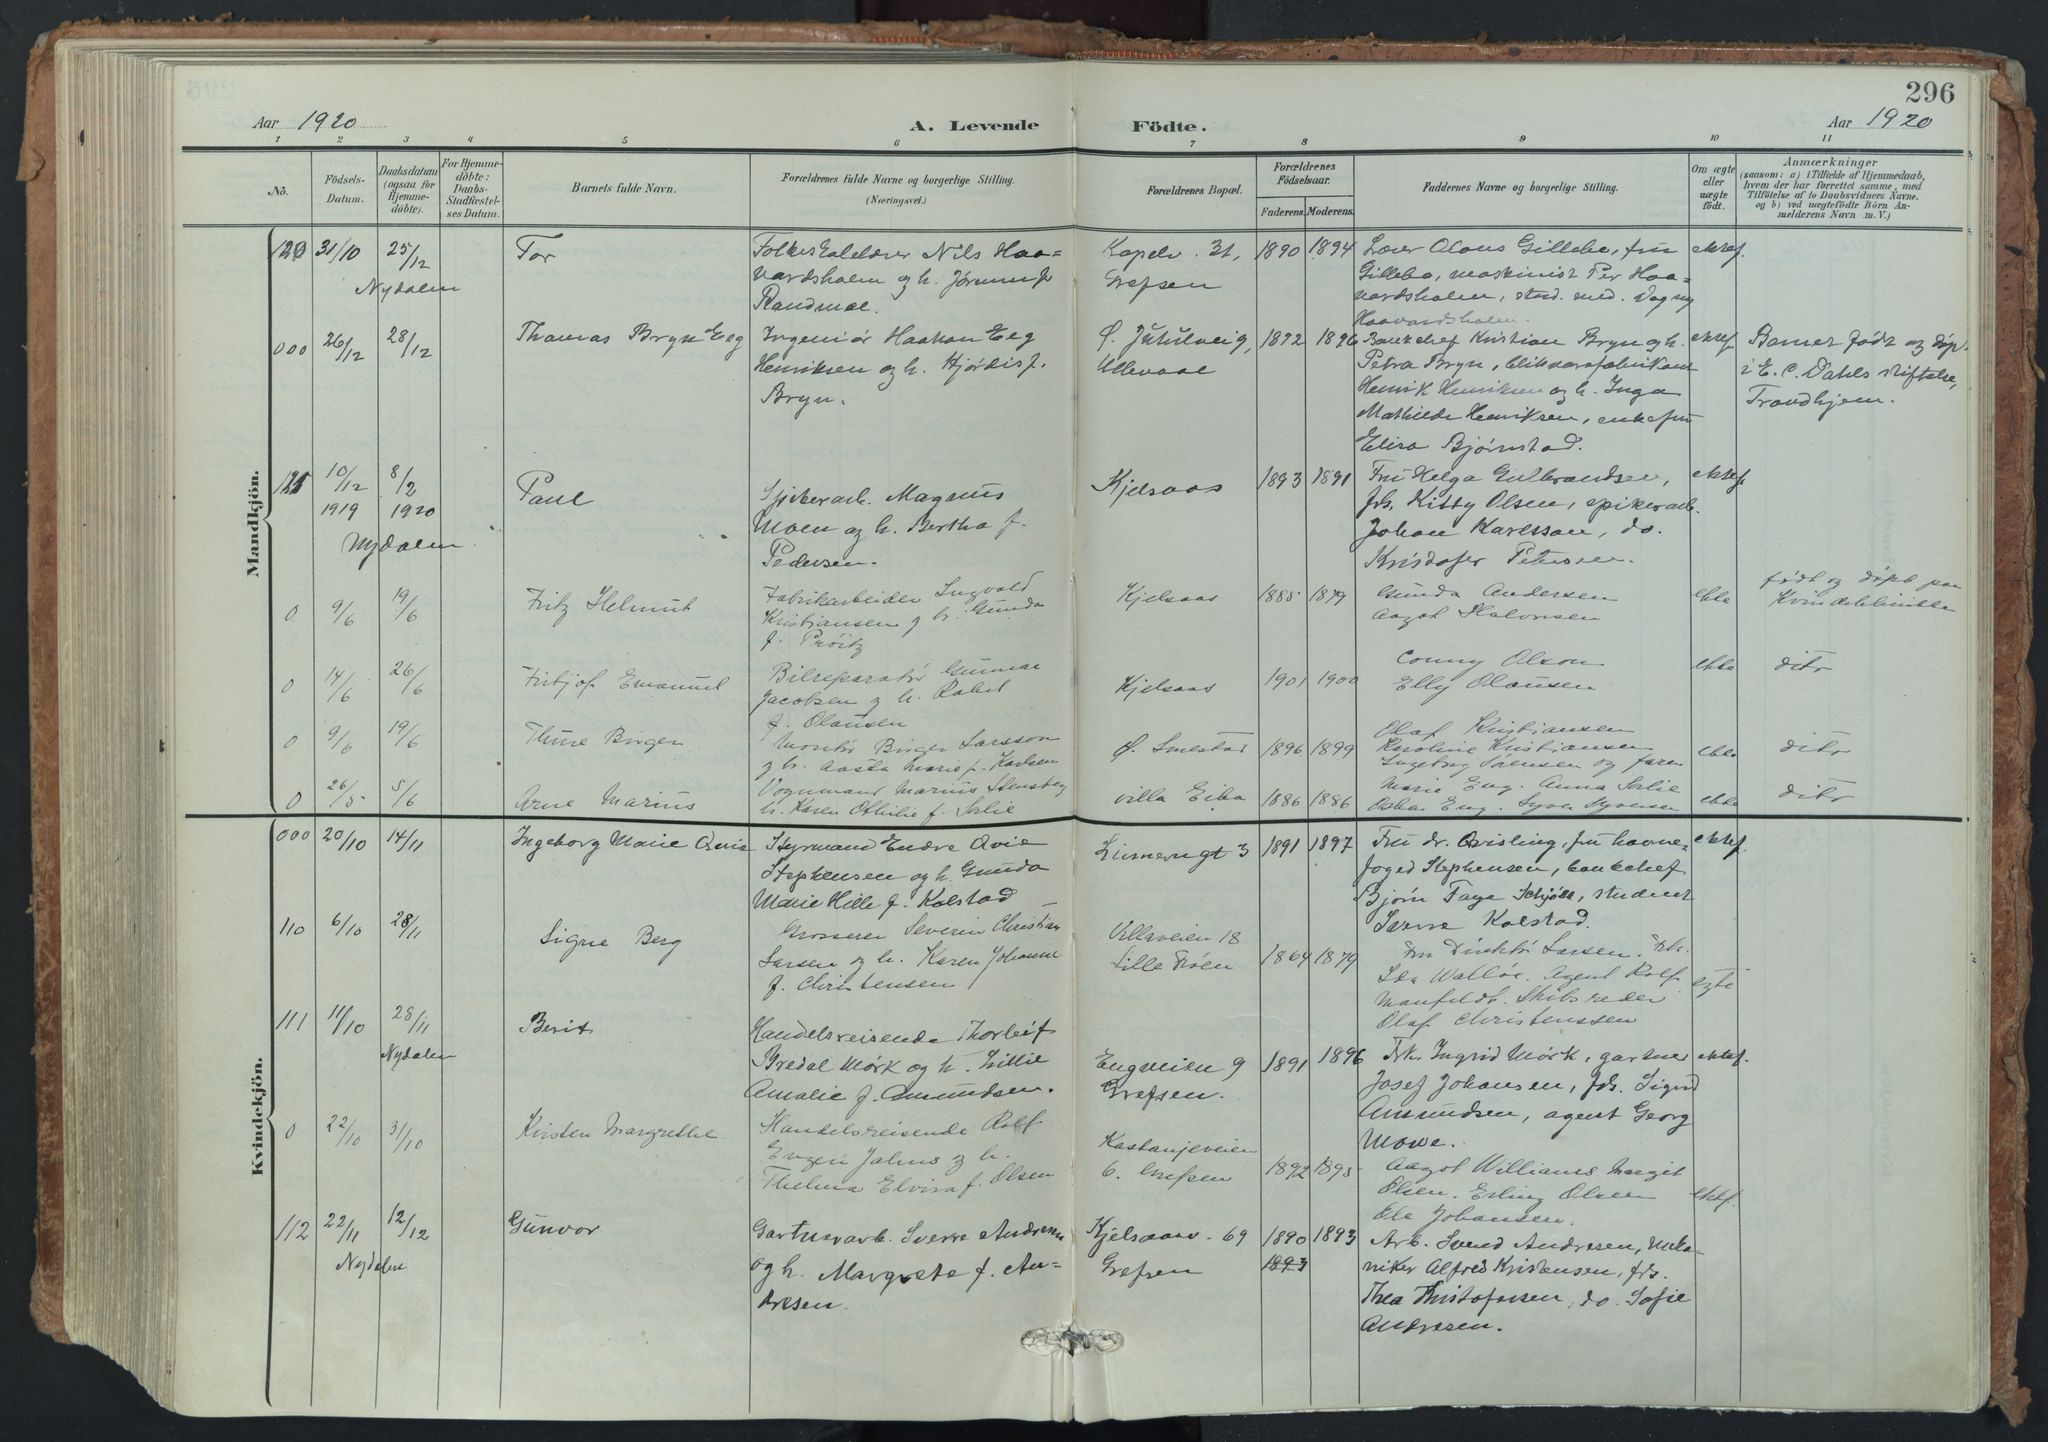 296
Aar 1920
A. Levende
Födte.
Aar 1920
1 2 3 4 5 6 7 8 9 10 11
No.
Födsels-Datum.
Daabsdatum (ogsaa for Hjemme-döbte).
For Hjemme-döbte: Daabs-Stadfæstel-ses Datum.
Barnets fulde Navn.
Forældrenes fulde Navne og borgerlige Stilling.
(Næringsvei.)
Forældrenes Bopæl.
Forældrenes Födselsaar.
Faderens. Moderens.
Faddernes Navne og borgerlige Stilling.
Om ægte eller uægte födt.
Anmærkninger
(saasom: a) i Tilfælde af Hjemmedaab,
hvem der har forrettet samme, med
Tilföielse af to Daabsvidners Navne,
og b) ved uægtefödte Börn An-
melderens Navn m. V.)
Mandkjön.
120 31/10 25/12
Nydalen
Tor
Nils Haa-
vardsholm og h. Jorunn f.
Randmæl.
Kapelv. 31,
Grefsen
1890 1894
Lærer Olaus Gillebo, fru
Gillebo, maskinist Per Haa-
vardsholm, stud. med. Dagny
Haavardsholm.
ektef.
000 26/12 28/12
Thomas Bryn Eeg
Ingeniør Haakon Eeg
Henriksen og h. Hjørdis f.
Bryn.
Ø. Jutulveig,
Ullevaal
1892 1896
Bankchef Kristian Bryn og h.
Petra Bryn, blikvarefabrikant
Henrik Henriksen og h. Inga
Mathilde Henriksen, enkefru
Elisa Bjørnstad.
ektef.
Barnet født og døpt
i E. C. Dahls stiftelse,
Trondhjem.
121 10/12 1919 8/2 1920
Nydalen
Paul
Spikerarb. Magnus
Moen og h. Bertha f.
Pedersen.
Kjelsaas
1893 1891
Fru Helga Gulbrandsen,
frk. Kitty Olsen, spikerarb.
Johan Karlsson, do.
Kristofer Petersen.
ektef.
0 9/6 19/6
Fritz Helmut
Fabrikarbeider Ingvald
Kristiansen og h. Gunda
f. Prøitz
Kjelsaas
1885 1879
Gunda Andersen
Aagot Halvorsen
ekte
født og døpt paa
Kvindeklinikken
0 14/6 26/6
Fritjof Emanuel
Bilreparatør Gunnar
Jacobsen og h.
f. Olausen
Kjelsaas
1901 1900
Conny Olson
Elly Olausen
ekte
dito
0 9/6 19/6
Thure Birger
Montør Birger Larsson
og h. Aasta Marie f. Karlsen
Ø. Smestad
1896 1899
Olaf Kristiansen
Karoline Kristiansen
Ingeborg Sørensen og faren
ekte
dito
0 26/5 5/6
Arne Marius
Vognmand Marius Stensberg
h. Karen Othilie f. Sælie
villa Eiba
1886 1886
Marie Eng. Anna Sælie
Eng. Syver Syversen
ekte
dito
Kvindekjön.
000 20/10 14/11
Ingeborg Marie Qvie
Styrmand Endre Qvie
Stephensen og h. Gunda
Marie Hille f. Kolstad
3
1891 1897
Fru dr. Qvisling, fru havne-
foged Stephensen, bankchef
Bjørn Faye Schjøll, student
Sverre Kolstad.
ektef.
110 6/10 28/11
Signe Berg
Grosserer Severin Christian
Larsen og h. Karen Johanne
f. Christensen
Villaveien 18
Lille Frøen
1864 1879
Fru Direktør Larsen. Frk.
Agent Rolf
Manfeldt. Skibsreder
Olaf Christenssen
egte
111 11/10 28/11
Nydalen
Berit
Handelsreisende Thorleif
Bredal Mørk og h. Lillie
Amalie f. Amundsen.
Engveien 9
Grefsen.
1891 1896
Frk. Ingrid Mørk, gartner
Josef Johansen, frk. Sigrid
Amundsen, agent Georg
Mowe.
ektef.
0 22/10 31/10
Kirsten Margrethe
Handelsreisende Rolf
Eugen Jahns og h.
Thelma Elvira f. Olsen
Kastanjeveien
6. Grefsen
1892 1895
Aagot Williams Margit
Olsen. Erling Olsen
Ole Johansen.
ektef.
112 22/11 12/12
Nydalen
Gunvor
Gartnerarb. Sverre Andresen
og h. Margrete f. An-
dresen.
Kjelsaasv. 69
Grefsen
1890 1893
1893
Arb. Svend Andresen, meka-
niker Alfred Kristensen, frk.
Thea Kristofersen, do. Sofie
Andresen.